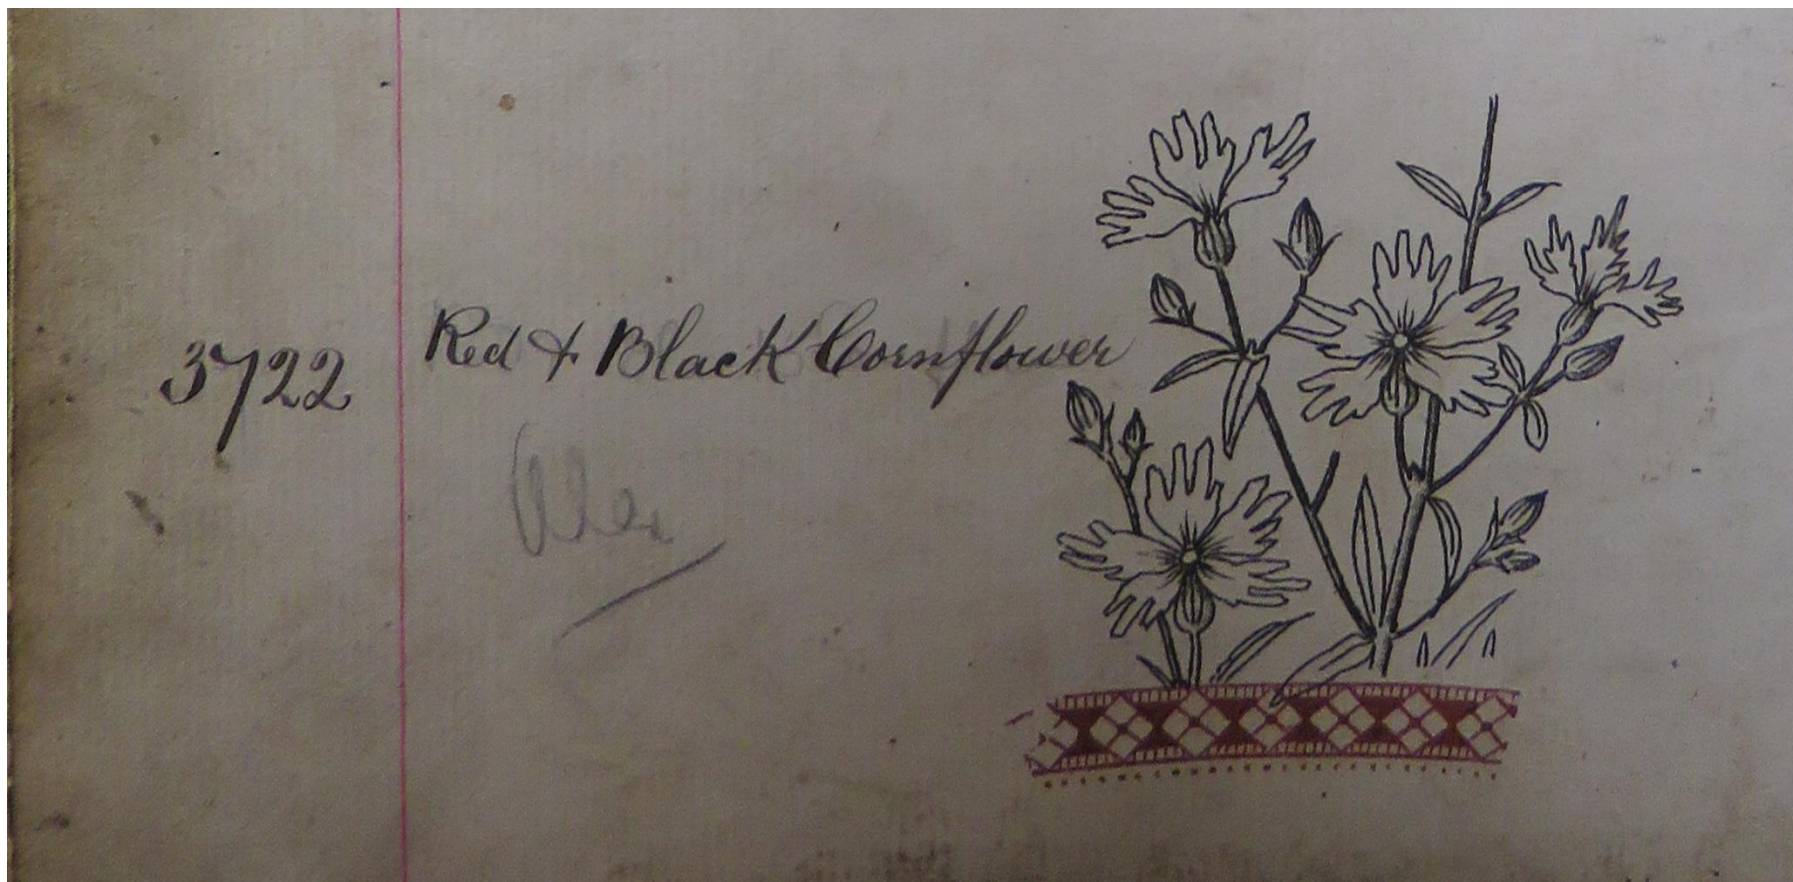 3722 Red & Black Cornflower